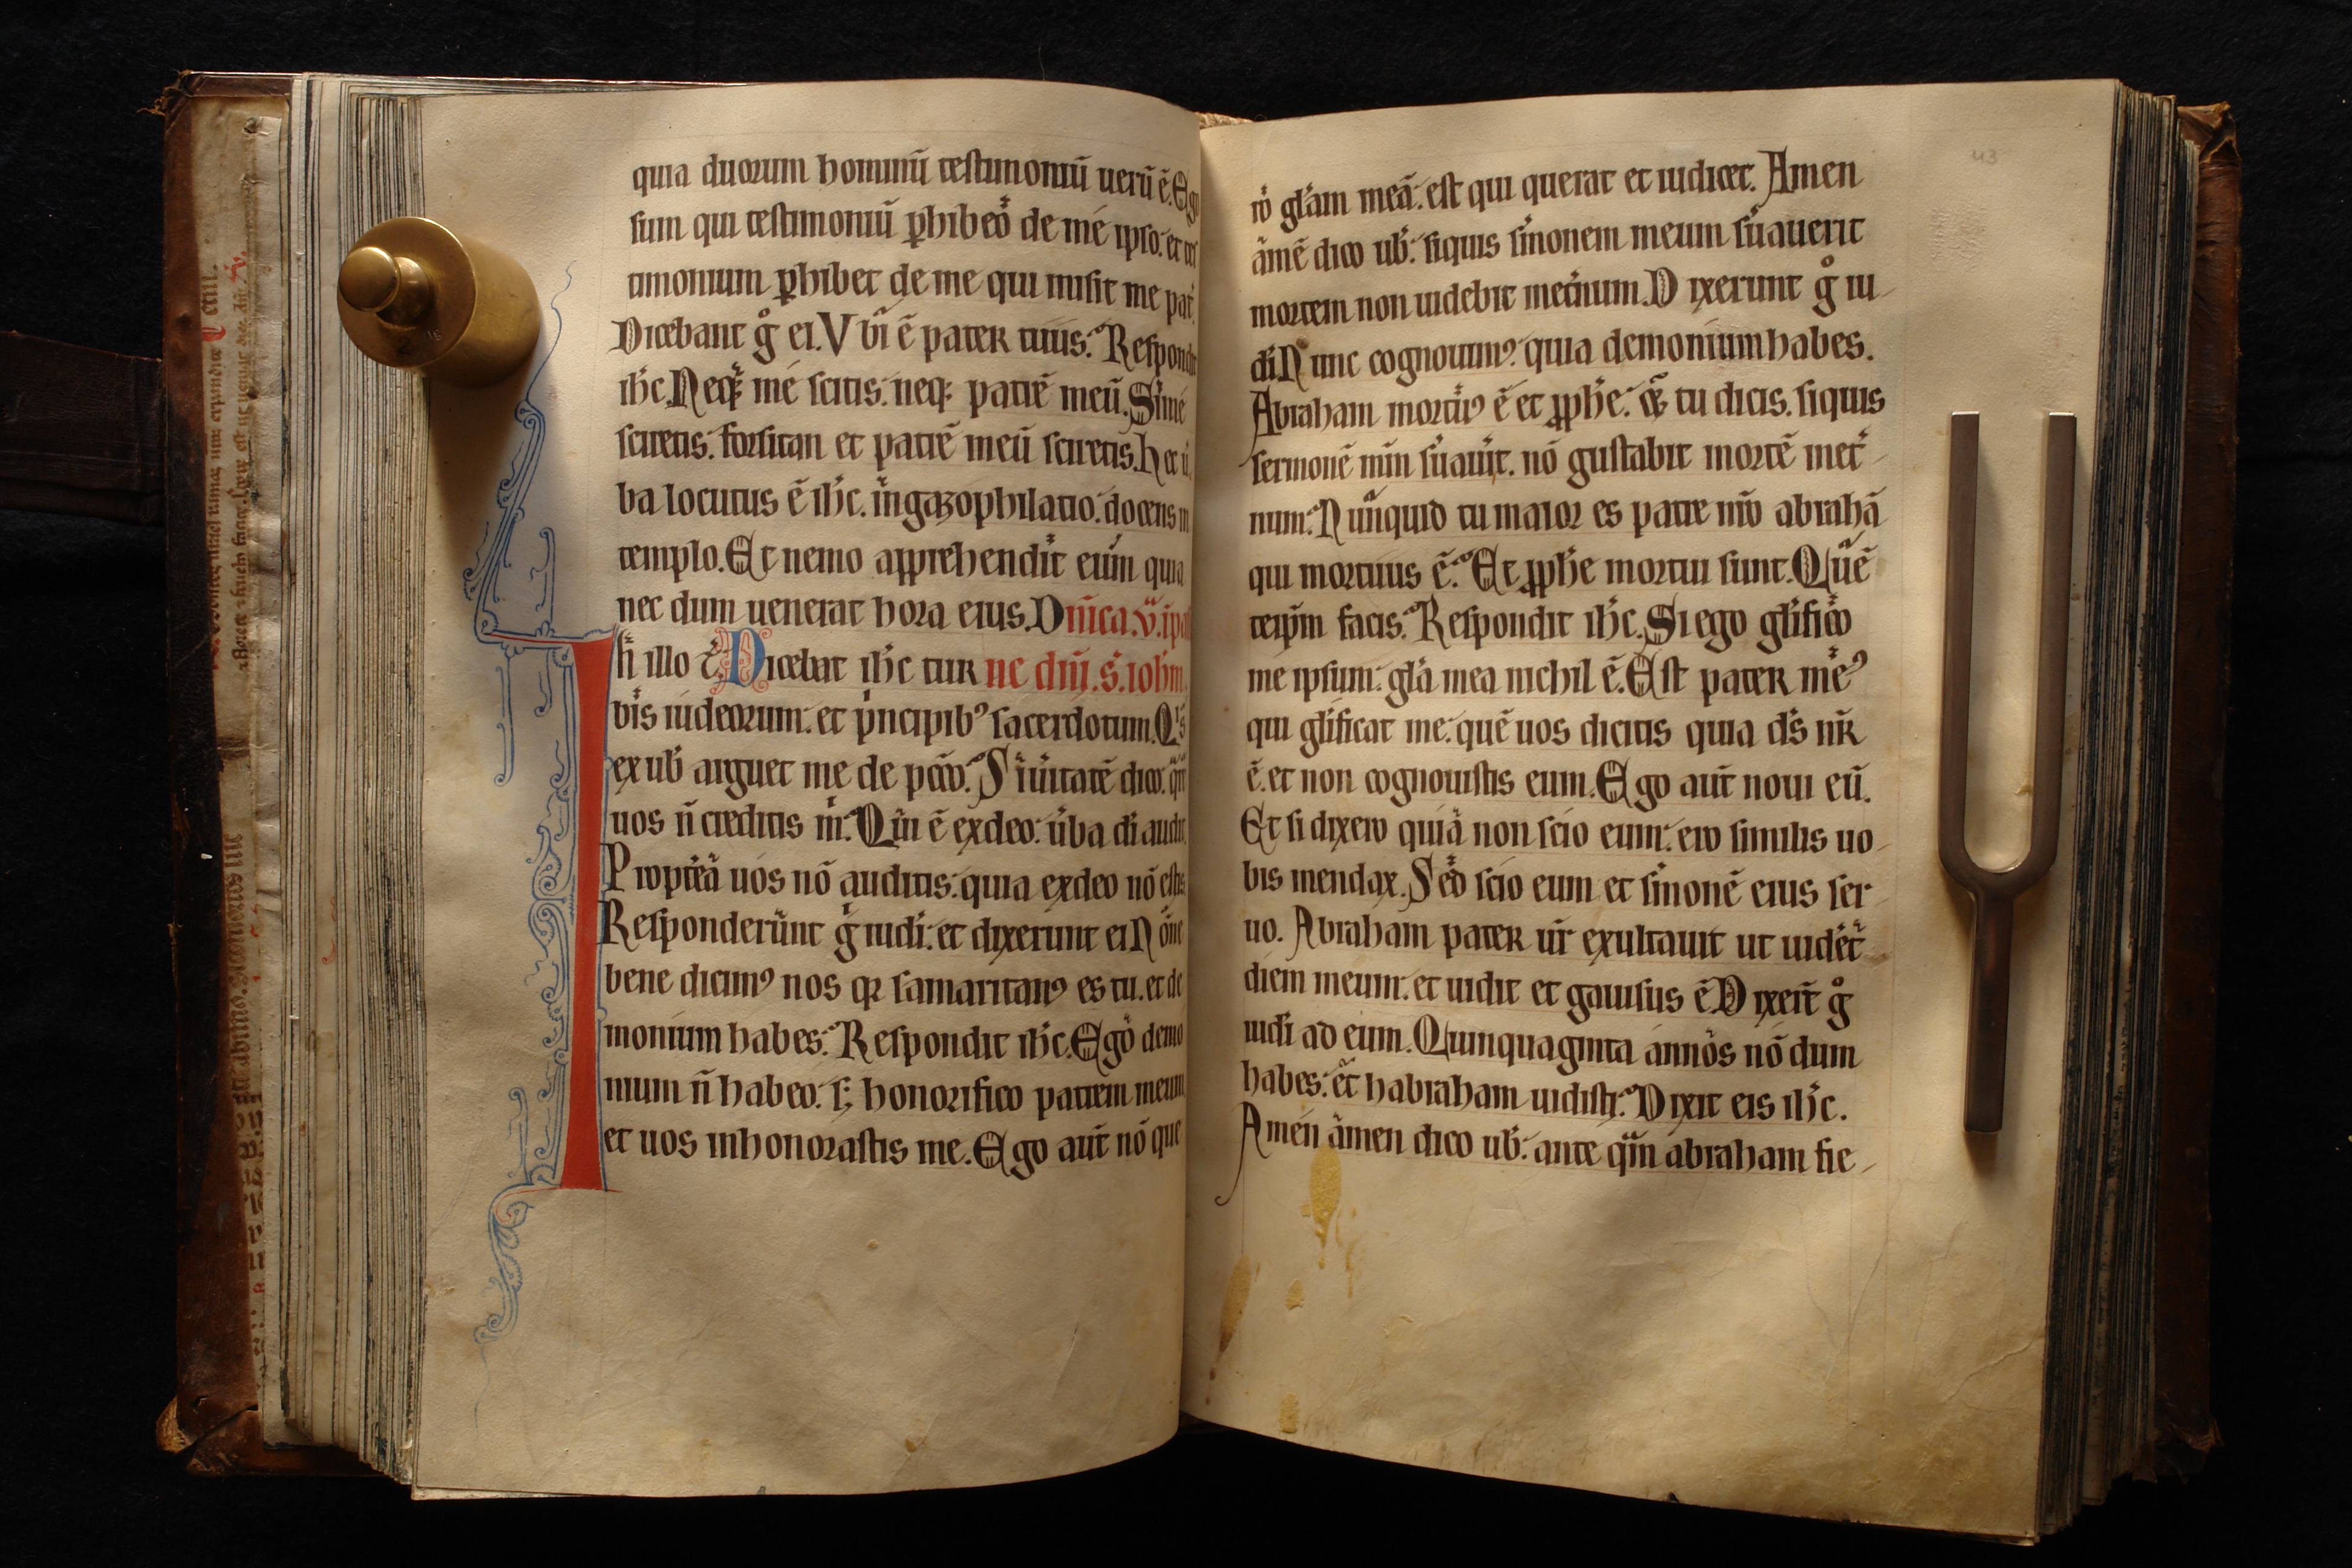 quia duorum hominũ testimoniũ uerũ ẽ. Ego
sum qui testimoniũ ꝑhibeo de me ipso. et tes
timonium ꝑhibet de me qui misit me pat̉
Dicebant g̊ ei. Vbi ẽ pater tuus. Respondit
ih̅c. Neqꝫ me scitis. neqꝫ patrẽ meũ. Si me
sciretis. forsitan et patrẽ meũ sciretis. Hec ũ
ba locutus ẽ ih̅c. in gazophilatio. docens in
templo. Et nemo apprehendit eum quia
nec dum uenerat hora eius. Dñica .v. ĩ pas
In illo t̄. Dicebat ih̅c tur ne dñi. s̄. ioh̅m.
bis iudeorum. et pͥncipibꝰ sacerdotum. Qͥs
ex ub̅ arguet me de pc̅o. Si ũitatẽ dico. qͣr
uos ñ creditis mͥ. Qͥ ẽ ex deo. ũba di audit.
Propt̉ea uos nõ auditis. quia ex deo nõ estis
Responderunt g̊ iudi. et dixerunt ei. Nõne
bene dicimꝰ nos qꝛ samaritanꝰ es tu. et de
monium habes. Respondit ih̅c. Ego demo
nium ñ habeo. sꝫ honorifico patrem meum
et uos inhonorastis me. Ego aut̃ nõ que
ro gl̅am meã. est qui querat et iudicet. Amen
amẽ dico ub̅. siquis s̉monem meum s̉uauerit
mortem non uidebit met̉num. Dixerunt g̊ iu
di. Nunc cognouimꝰ quia demonium habes.
Abraham mortuꝰ ẽ et ꝓph̅e. & tu dicis. siquis
sermonẽ mm̃ s̉uau̓it. nõ gustabit mortẽ met̉
num. Nũquid tu maior es patre nr̃o abrahã
qui mortuus ẽ. Et ꝓph̅e mortui sunt. Quẽ
teip̅m facis. Respondit ih̅c. Si ego gl̅ifico
me ipsum. gl̅a mea nichil ẽ. Est pater meꝰ
qui gl̅ificat me. quẽ uos dicitis quia ds̅ nr̃
ẽ. et non cognouistis eum. Ego aut̃ noui eũ.
Et si dixero quia non scio eum. ero similis uo
bis mendax. Sed scio eum et s̉monẽ eius ser
uo. Abraham pater ur̃ exultauit ut uidet̉
diem meum. et uidit et gauisus ẽ. Dixer̃t g̊
iudi ad eum. Quinquaginta annos nõ dum
habes. et habraham uidisti. Dixit eis ih̅c.
Amen amen dico ub̅. ante qͣm abraham fie
43